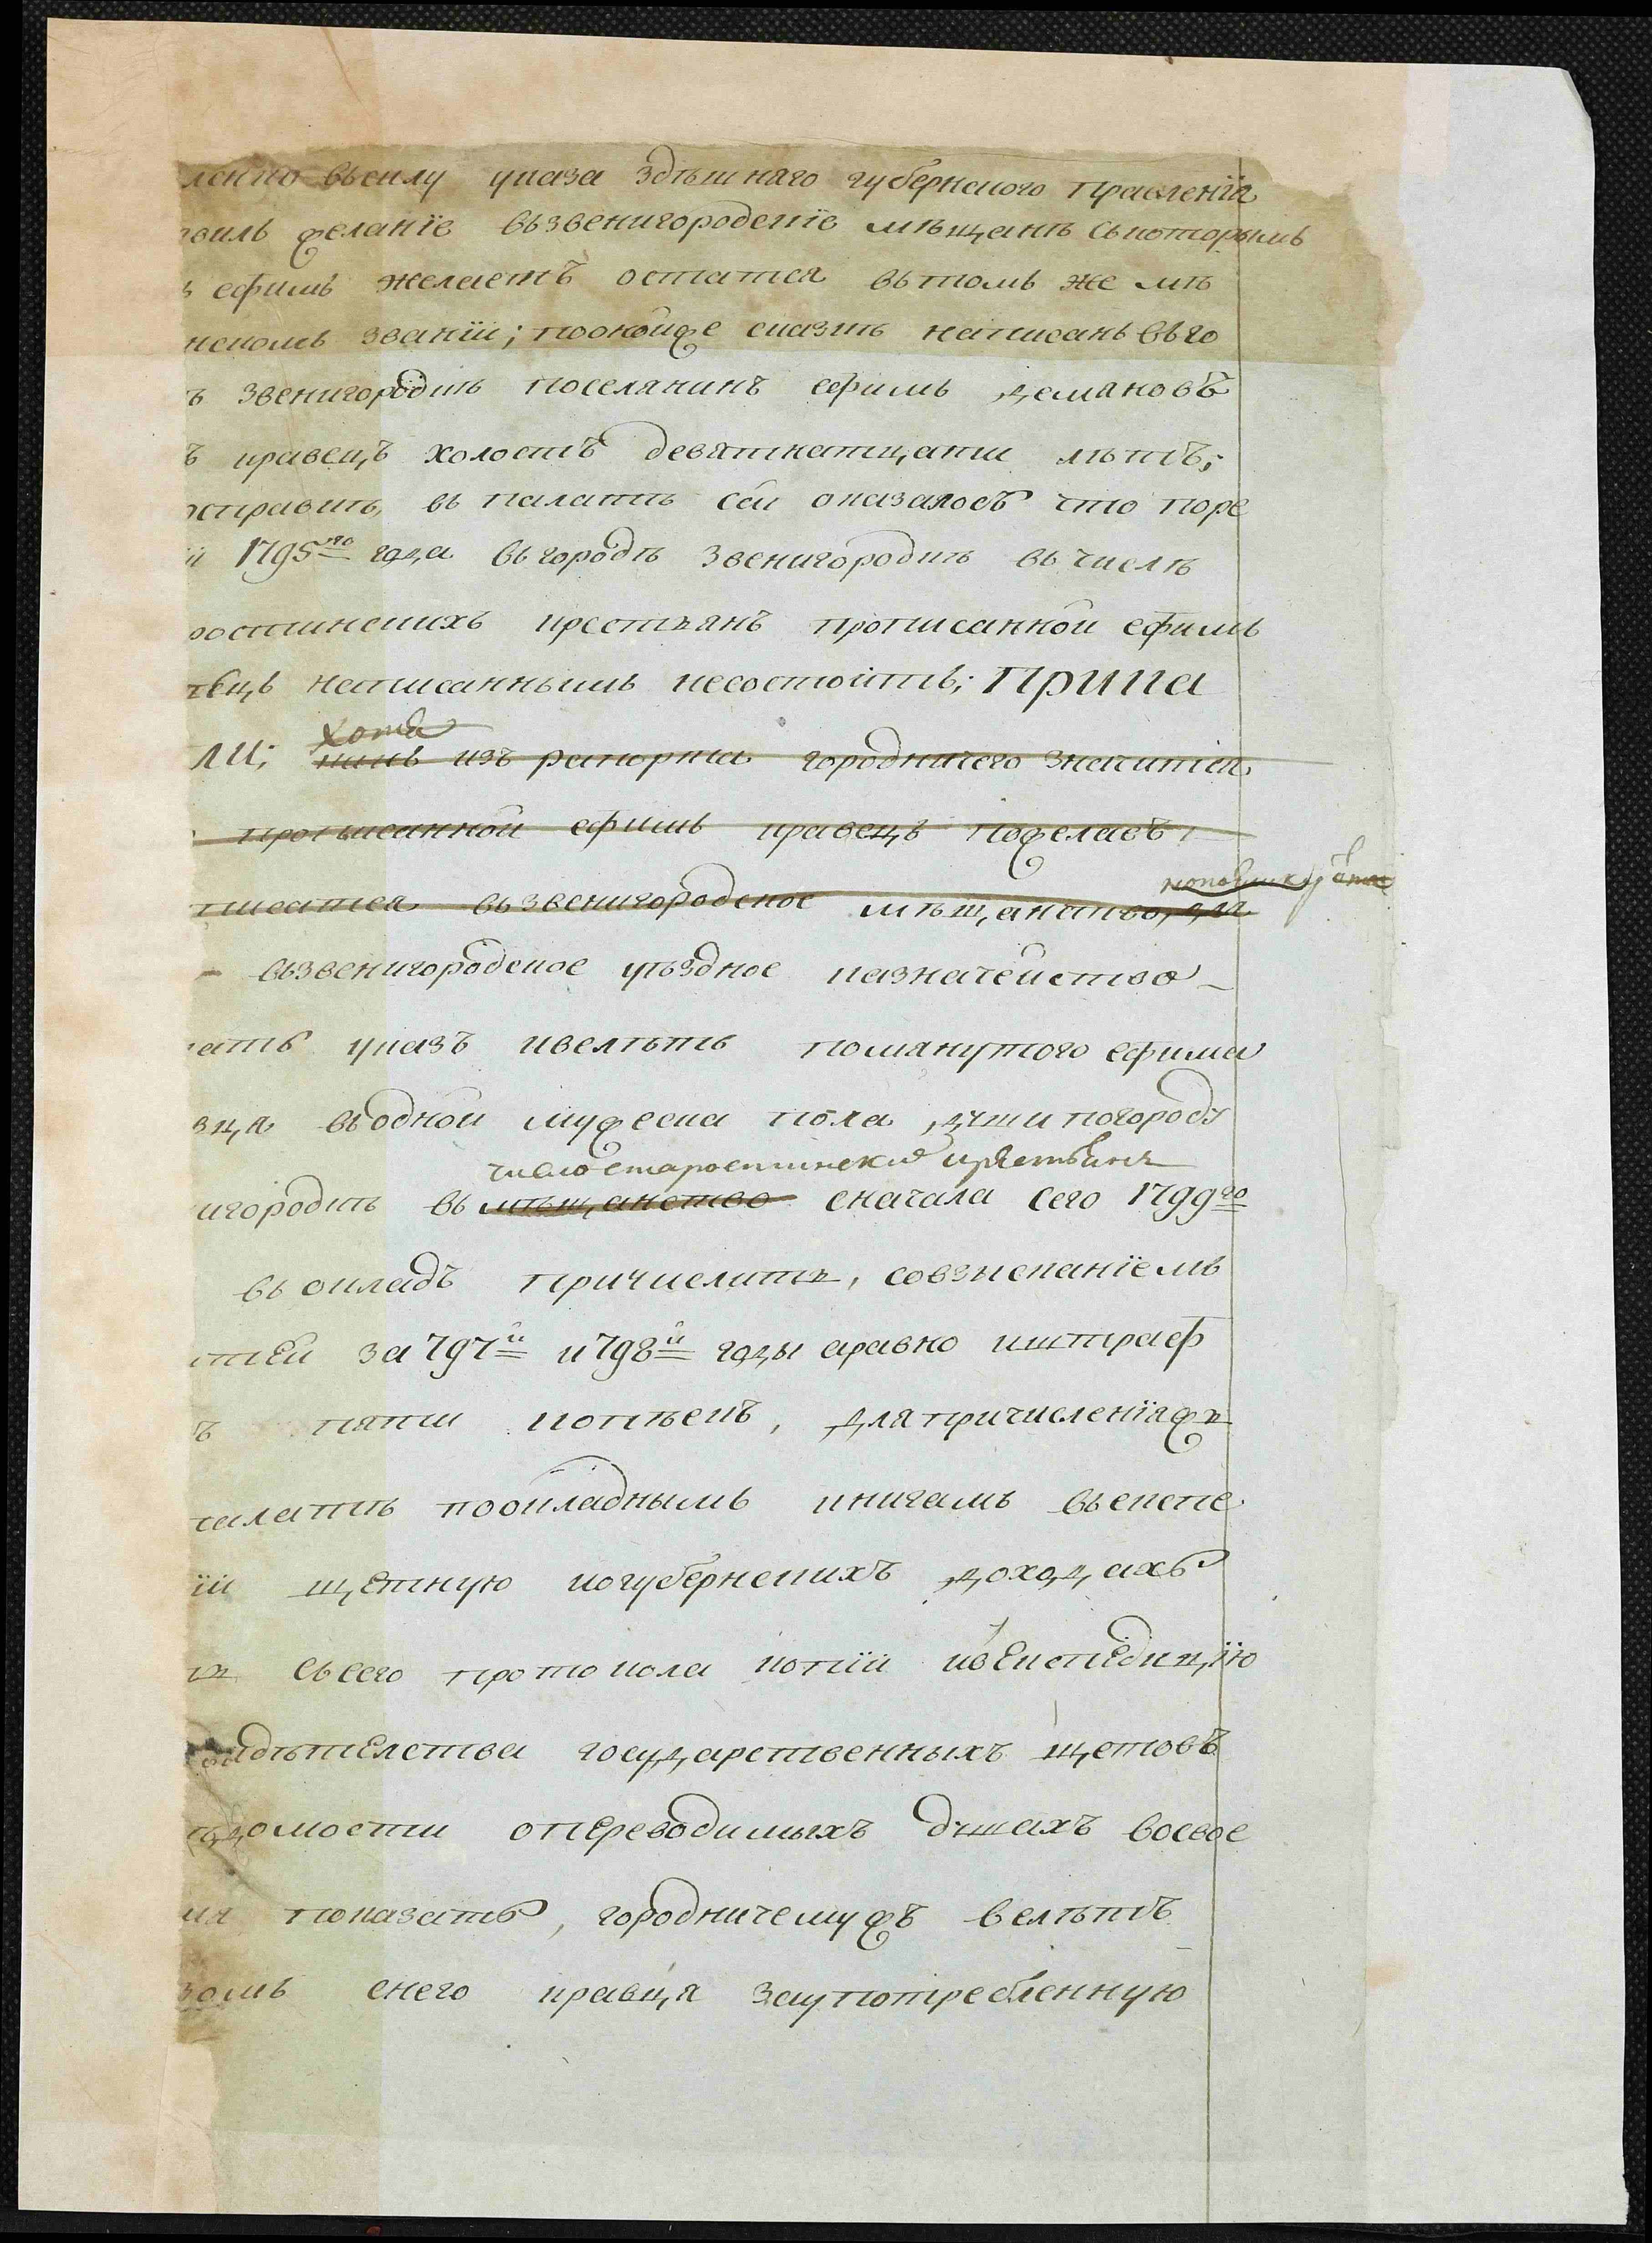 ленно въсилу указа здѣшняго губернскаго Правленїя
явилъ желанїе възвенигородскїе мѣщанъ скоторымъ
ъ ефимъ желаетъ остатся втомъ же мѣ
нскомъ званїи; покойже сказкѣ написанъ вѣго
ѣ Звенигородкѣ поселянинъ ефимъ демяновъ
ъ кравецъ холостъ девятнатцати лѣтъ;
осправкѣ, въ палатѣ сей оказалось что поре
и 1795го года въгородѣ Звенигородкѣ въ числѣ
ростинскихъ крестьянъ прописанной ефимъ
вецъ написаннымъ несостоитъ; Прика
ли; хотя
нинѣ изъ рапорта городничего значитъ
прописанной ефимъ кравецъ пожелавъ
писатся възвенигородское мѣщанство, для
възвенигородское уѣздное казначейство
ать указъ ивелѣть помянутого ефима
вца въодной мужеска пола души погороду
число старостинскихъ крестьянъ
игородкѣ въ мѣщанство сначала сего 1799го
въ окладъ причислить, совзысканїемъ
тей за 797й и 798й годы аравно иштраф
ъ пяти копѣекъ, для причисленїяжъ
палатѣ поокладнымъ книгамъ векспе
їи щетную огубернскихъ доходахъ
ть съсего протокола копїи ивекспедицїю
видѣтелства государственныхъ щетовъ
ѣдомости опереводимыхъ душахъ восвое
мя показать, городничемужъ велѣть
зомъ снего кравця заупотребленную